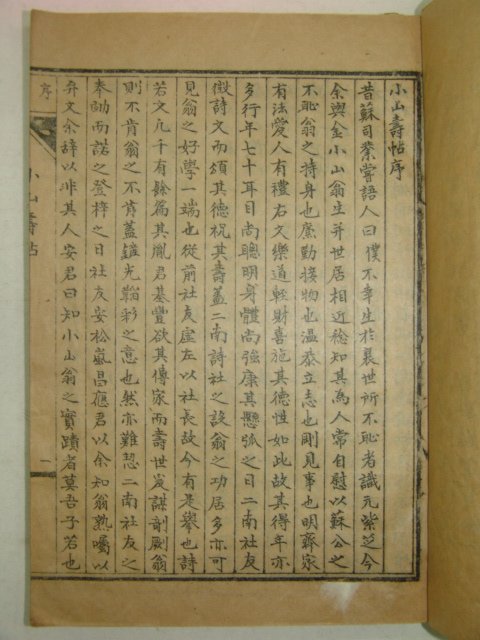 小山壽帖序
昔蘇司業嘗語人曰僕不幸生於衰世所不恥者識元紫芝今
余與金小山翁生并世居相近稔知其爲人常自慰以蘇公之
不恥翁之持身也廉勤接物也溫恭立志也剛見事也明齊家
有法愛人有禮右文樂道輕財喜施其德性如此故其得年亦
多行年七十耳目尚聰明身體尚强康其懸弧之日二南社友
徵詩文而頌其德祝其壽蓋二南詩社之設翁之功居多亦可
見翁之好學一端也從前社友虛左以社長故今有是擧也詩
若文凡千有餘篇其胤君基豐欲其傳家而壽世爰謀剞劂翁
則不肯翁之不肯蓋鏟光韜彩之意也然亦難恝二南社友之
奉勸而諾之登梓之日社友安松嵐昌應君以余知翁熟囑以
弁文余辞以非其人安君曰知小山翁之實蹟者莫吾子若也
序
小山壽帖
一